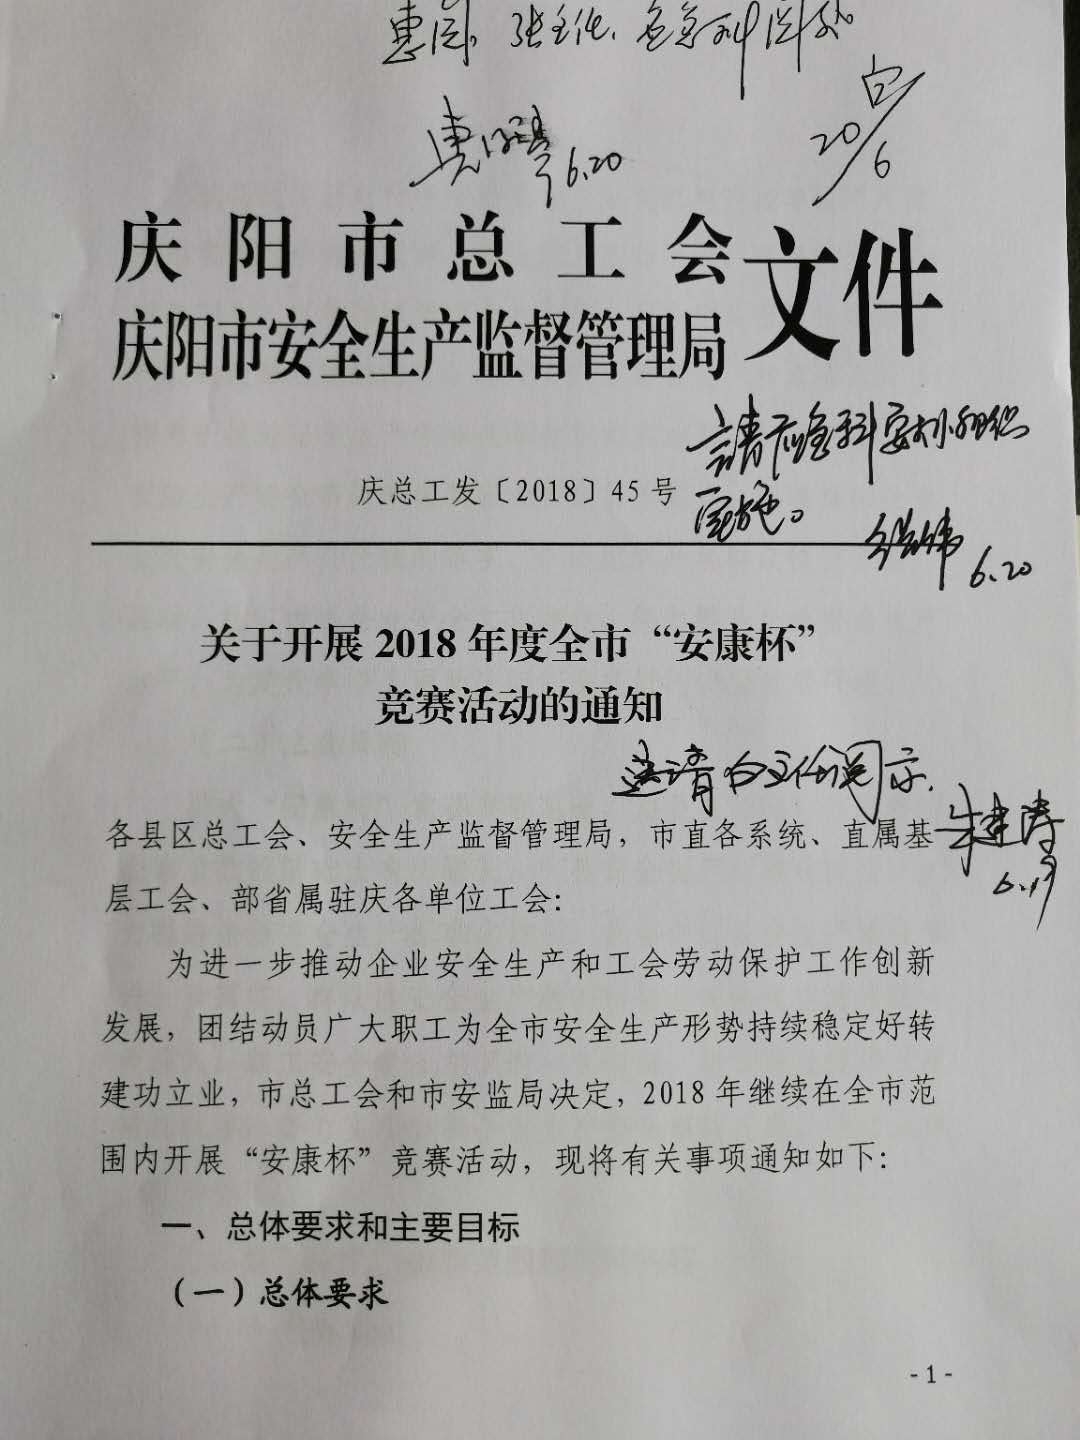 惠阅,张主任、
20/6
6.20
庆阳市总工会
庆阳市安全生产监督管理局
文件
請应急科安排组织
实施。
6.20
庆总工发〔2018〕45号
关于开展 2018 年度全市“安康杯”
竞赛活动的通知
送请白主任阅示.
朱建涛
6.19
各县区总工会、安全生产监督管理局，市直各系统、直属基
层工会、部省属驻庆各单位工会：
为进一步推动企业安全生产和工会劳动保护工作创新
发展，团结动员广大职工为全市安全生产形势持续稳定好转
建功立业，市总工会和市安监局决定，2018 年继续在全市范
围内开展“安康杯”竞赛活动，现将有关事项通知如下：
一、总体要求和主要目标
（一）总体要求
- 1 -